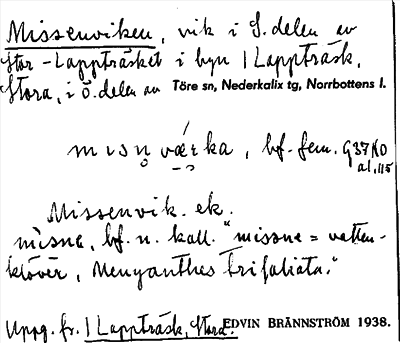 Missenviken, vik i S. delen av
Stor-Lappträsket i byn 1 Lappträsk,
Stora, i ö. delen av Töre sn, Nederkalix tg, Norrbottens l.
mısn̥ vǽrka, bf. fem. G37 NO
a1,115
Missenvik. ek.
mìsne, bf. n. koll. "missne = vatten-
klöver, Menyanthes trifoliata."
Uppg. fr. 1 Lappträsk, Stora. EDVIN BRÄNNSTRÖM 1938.